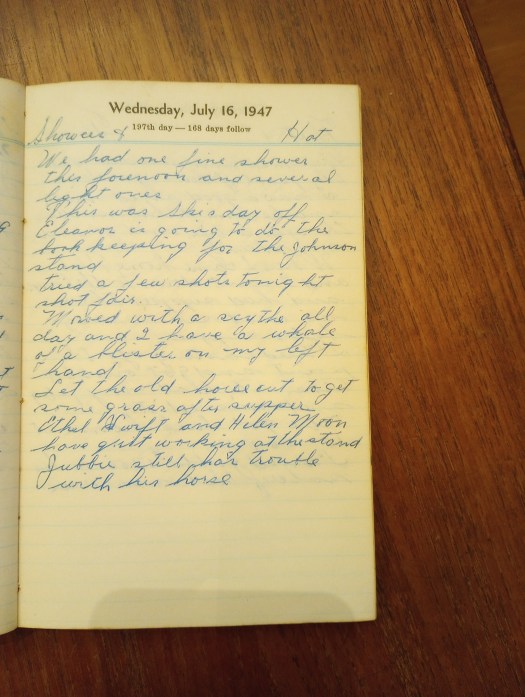 Wednesday, July 16, 1947
197th day — 168 days follow
Showers & Hot
We had one fine shower
this forenoon and several
light ones
This was Skis day off
Eleanor is going to do the
book keeping for the Johnson
stand
tried a few shots tonight
shot fair.
Mowed with a scythe all
day and I have a whale
of a blister on my left
hand
Let the old horse out to get
some grass after supper
Ethel Swift and Helen Moon
have quit working at the stand
Jubbie still has trouble
with his horse